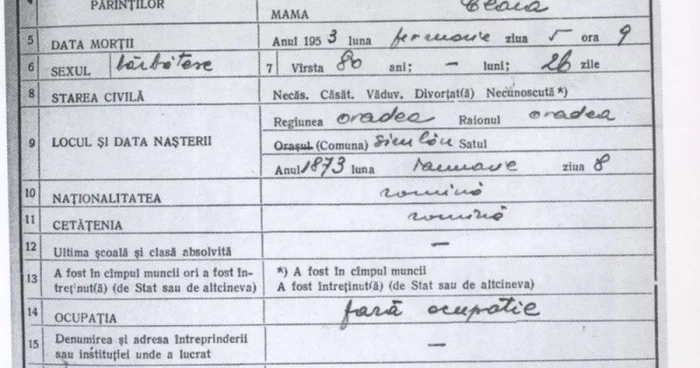 4 PĂRINȚILOR
MAMA
5 DATA MORȚII Anul 1953 luna februarie ziua 5 ora 9
6 SEXUL bărbătesc 7 Vîrsta 80 ani; — luni; 26 zile
8 STAREA CIVILĂ Necăs. Căsăt. Văduv. Divorțat(ă) Necunoscută *)
Regiunea oradea Raionul oradea
9 LOCUL ȘI DATA NAȘTERII Orașul (Comuna) Satul
Anul 1873 luna ianuarie ziua 8
10 NAȚIONALITATEA romînă
11 CETĂȚENIA romînă
12 Ultima școală și clasă absolvită —
13 A fost în cîmpul muncii ori a fost în- *) A fost în cîmpul muncii
treținut(ă) (de Stat sau de altcineva) A fost întreținut(ă) (de Stat sau de altcineva)
14 OCUPAȚIA fară ocupatie
15 Denumirea și adresa întreprinderii —
sau instituției unde a lucrat